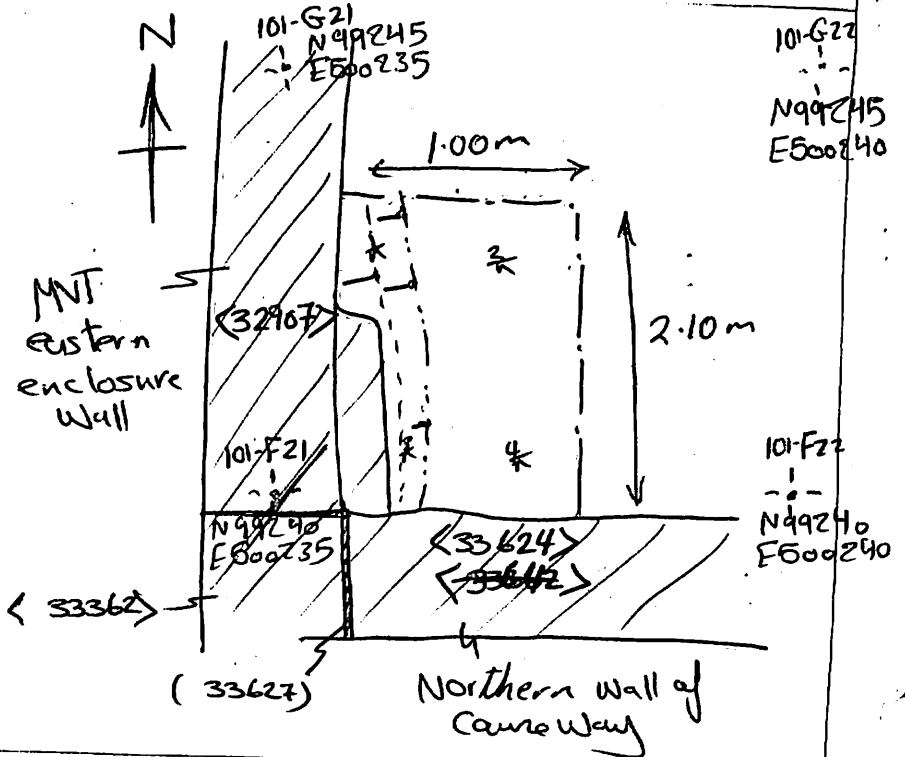 N
101-G21
N99245
E500235
101-G22
N99245
E500240
1.00m
2.10m
MNT
eastern
enclosure
Wall
<32907>
101-F21
N99240
E500235
101-F22
N99240
E500240
<33624>
<33362>
(33627)
Northern wall of
Causeway